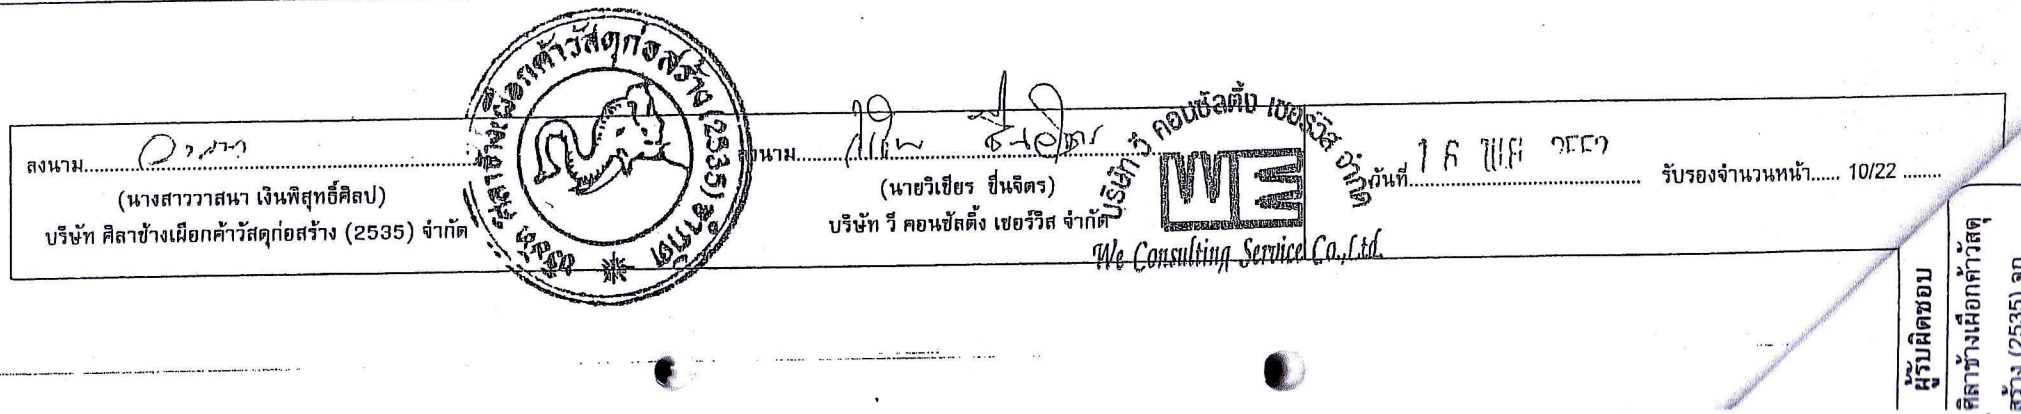 ลงนาม
(นางสาววาสนา เงินพิสุทธิ์ศิลป)
บริษัท ศิลาช้างเผือกค้าวัสดุก่อสร้าง (2535) จำกัด
บริษัท ศิลาช้างเผือกค้าวัสดุก่อสร้าง (2535) จำกัด
งนาม
(นายวิเชียร ชื่นจิตร)
บริษัท วี คอนซัลติ้ง เซอร์วิส จำกัด
บริษัท วี คอนซัลติ้ง เซอร์วิส จำกัด
WE
We Consulting Service Co.,Ltd.
วันที่
รับรองจำนวนหน้า...... 10/22 ........
ผู้รับผิดชอบ
ศิลาช้างเผือกค้าวัสดุ
สร้าง (2535) จก